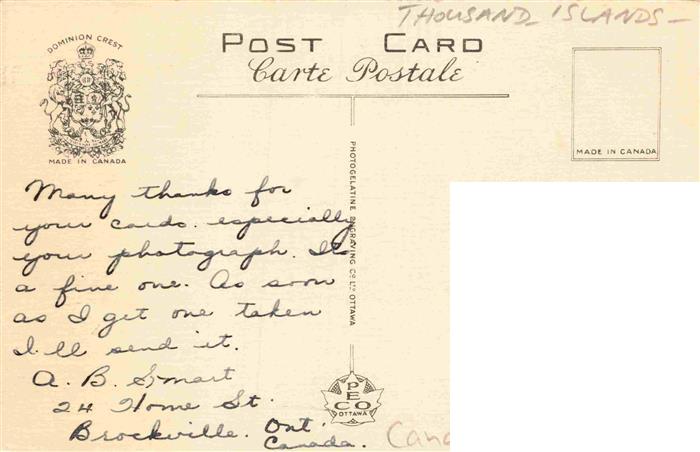 THOUSAND ISLANDS-
POST CARD
Carte Postale
DOMINION CREST
MADE IN CANADA
MADE IN CANADA
Many thanks for
your cards. especially
your photograph. Its
a fine one. As soon
as I get one taken
I'll send it.
A. B. Smart
24 Home St.
Brockville. Ont.
Canada.
PHOTOGELATINE ENGRAVING CO. LTD. OTTAWA
PECO
OTTAWA